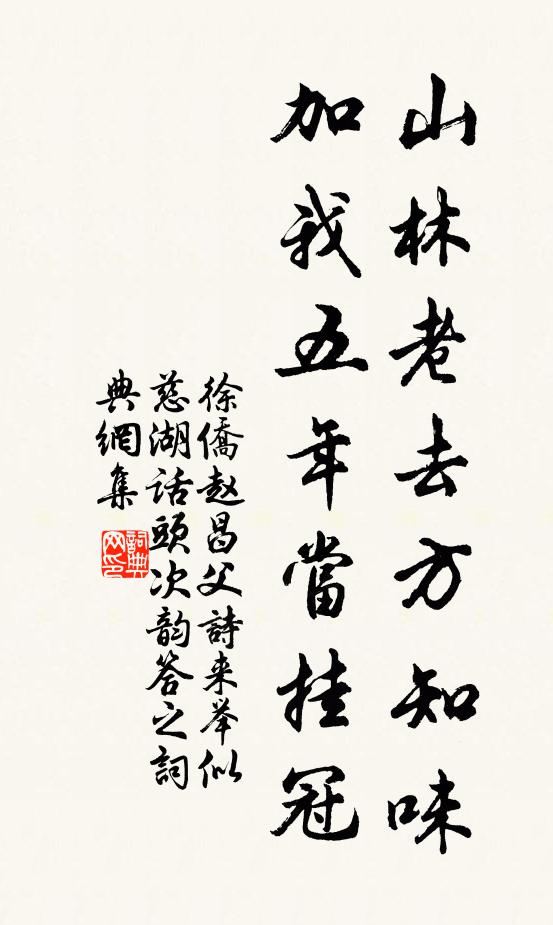 山林老去方知味
加我五年當挂冠
徐僑赵昌父詩来举似
慈湖话頭次韵答之詞
典網集
詞典网印